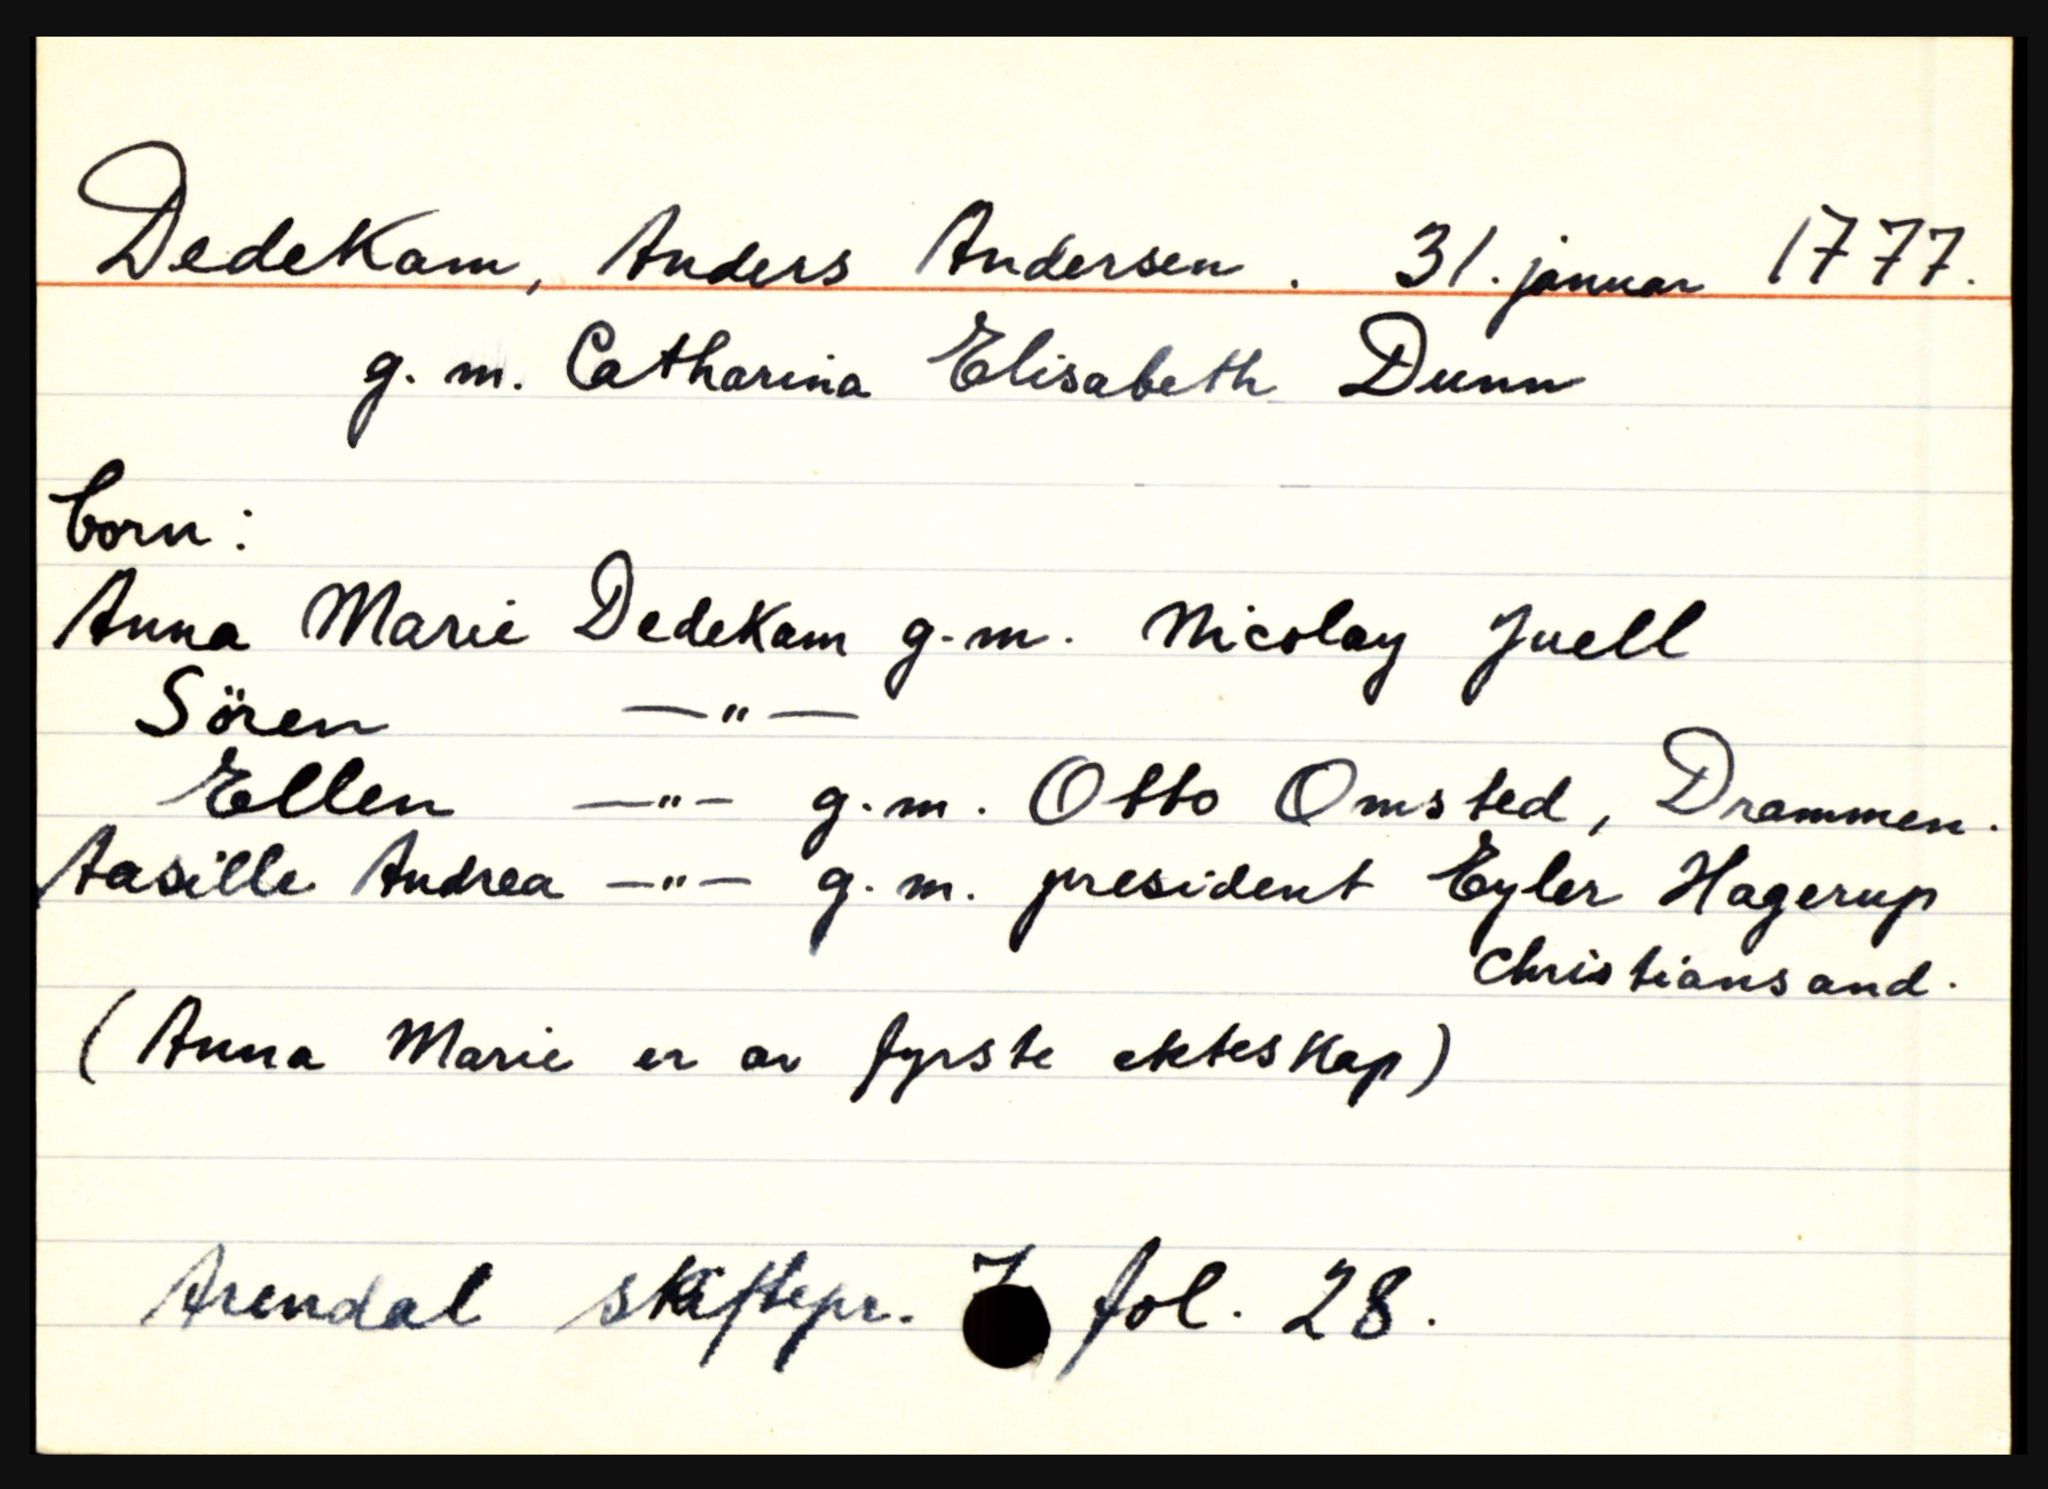 Dedekam, Anders Andersen. 31. januar 1777.
g. m. Catharina Elisabeth Dunn
born:
Anna Marie Dedekam g. m. Nicolay Juell
Sören —"—
Ellen —"— g. m. Otto Omsted, Drammen.
Aasille Andrea —"— g. m. president Eyler Hagerup
Christiansand.
(Anna Marie er av fyrste ekteskap)
Arendal skiftepr. 7 fol. 28.